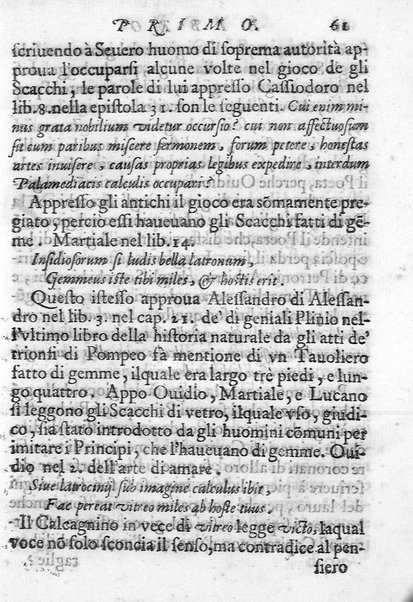 PRIMO. 61
scriuendo à Seuero huomo di soprema autorità ap-
proua l'occuparsi alcune volte nel gioco de gli
Scacchi, le parole di lui appresso Cassiodoro nel
lib. 8. nella epistola 31. son le seguenti. Cui enim mi-
nus grata nobilium videtur occursio? cui non affectuosum
sit eum paribus miscere sermonem, forum petere, honestas
artes inuisere, causas proprias legibus expedire, interdum
Palamediacis calculis occupari?
Appresso gli antichi il gioco era sōmamente pre-
giato, percio essi haueuano gli Scacchi fatti di gē-
me. Martiale nel lib. 14.
Insidiosorum si ludis bella latronum,
Gemmeus iste tibi miles, & hostis erit.
Questo istesso approua Alessandro di Alessan-
dro nel lib. 3. nel cap. 21. de' di geniali Plinio nel-
l'vltimo libro della historia naturale da gli atti de'
trionfi di Pompeo fa mentione di vn Tauoliero
fatto di gemme, ilquale era largo tre piedi, e lun
go quattro. Appo Ouidio, Martiale, e Lucano
si leggono gli Scacchi di vetro, ilquale vso, giudi-
co, sia stato introdotto da gli huomini cōmuni per
imitare i Principi, che l'haueuano di gemme. Oui
dio nel 2. dell'arte di amare.
Siue latrocinij sub imagine calculus ibit,
Fac pereat vitreo miles ab hoste tuus.
Il Calcagnino in vece di vitreo legge victo, laqual
voce nō solo sconcia il senso, ma contradice al pen-
siero